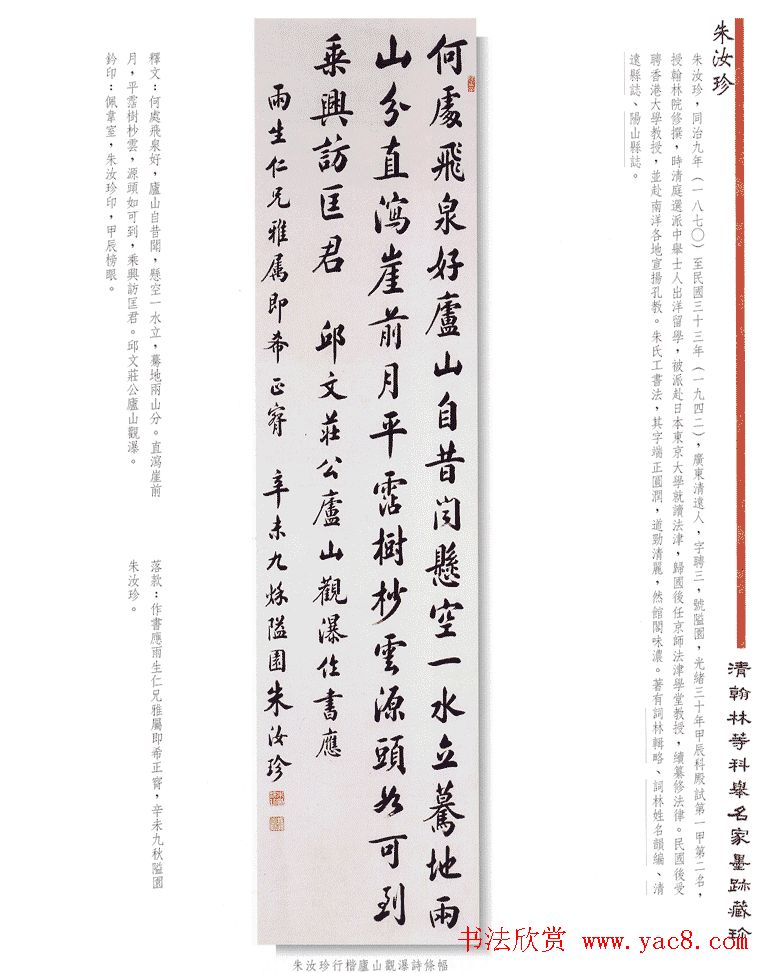 朱汝珍
清翰林等科舉名家墨跡藏珍
朱汝珍，同治九年（一八七〇）至民國三十三年（一九四二），廣東清遠人，字聘三，號隘園，光緒三十年甲辰科殿試第一甲第二名，
授翰林院修撰，時清庭選派中舉士人出洋留學，被派赴日本東京大學就讀法津，歸國後任京師法津學堂教授，續纂修法律。民國後受
聘香港大學教授，並赴南洋各地宣揚孔教。朱氏工書法，其字端正圓潤，遒勁清麗，然館閣味濃。著有詞林輯略、詞林姓名韻編、清
遠縣誌、陽山縣誌。
何處飛泉好廬山自昔闻懸空一水立驀地兩
山分直瀉崖前月平霑樹杪雲源頭如可到
乘興訪匡君　邱文莊公廬山觀瀑作書應
雨生仁兄雅属即希正窜　辛未九秌隘園朱汝珍
釋文：何處飛泉好，廬山自昔聞，懸空一水立，驀地兩山分。直瀉崖前
月，平霑樹杪雲，源頭如可到，乘興訪匡君。邱文莊公廬山觀瀑。
鈐印：佩韋室，朱汝珍印，甲辰榜眼。
落款：作書應雨生仁兄雅屬即希正窜，辛未九秋隘園
朱汝珍。
朱汝珍行楷廬山觀瀑詩條幅
书法欣赏 www.yac8.com